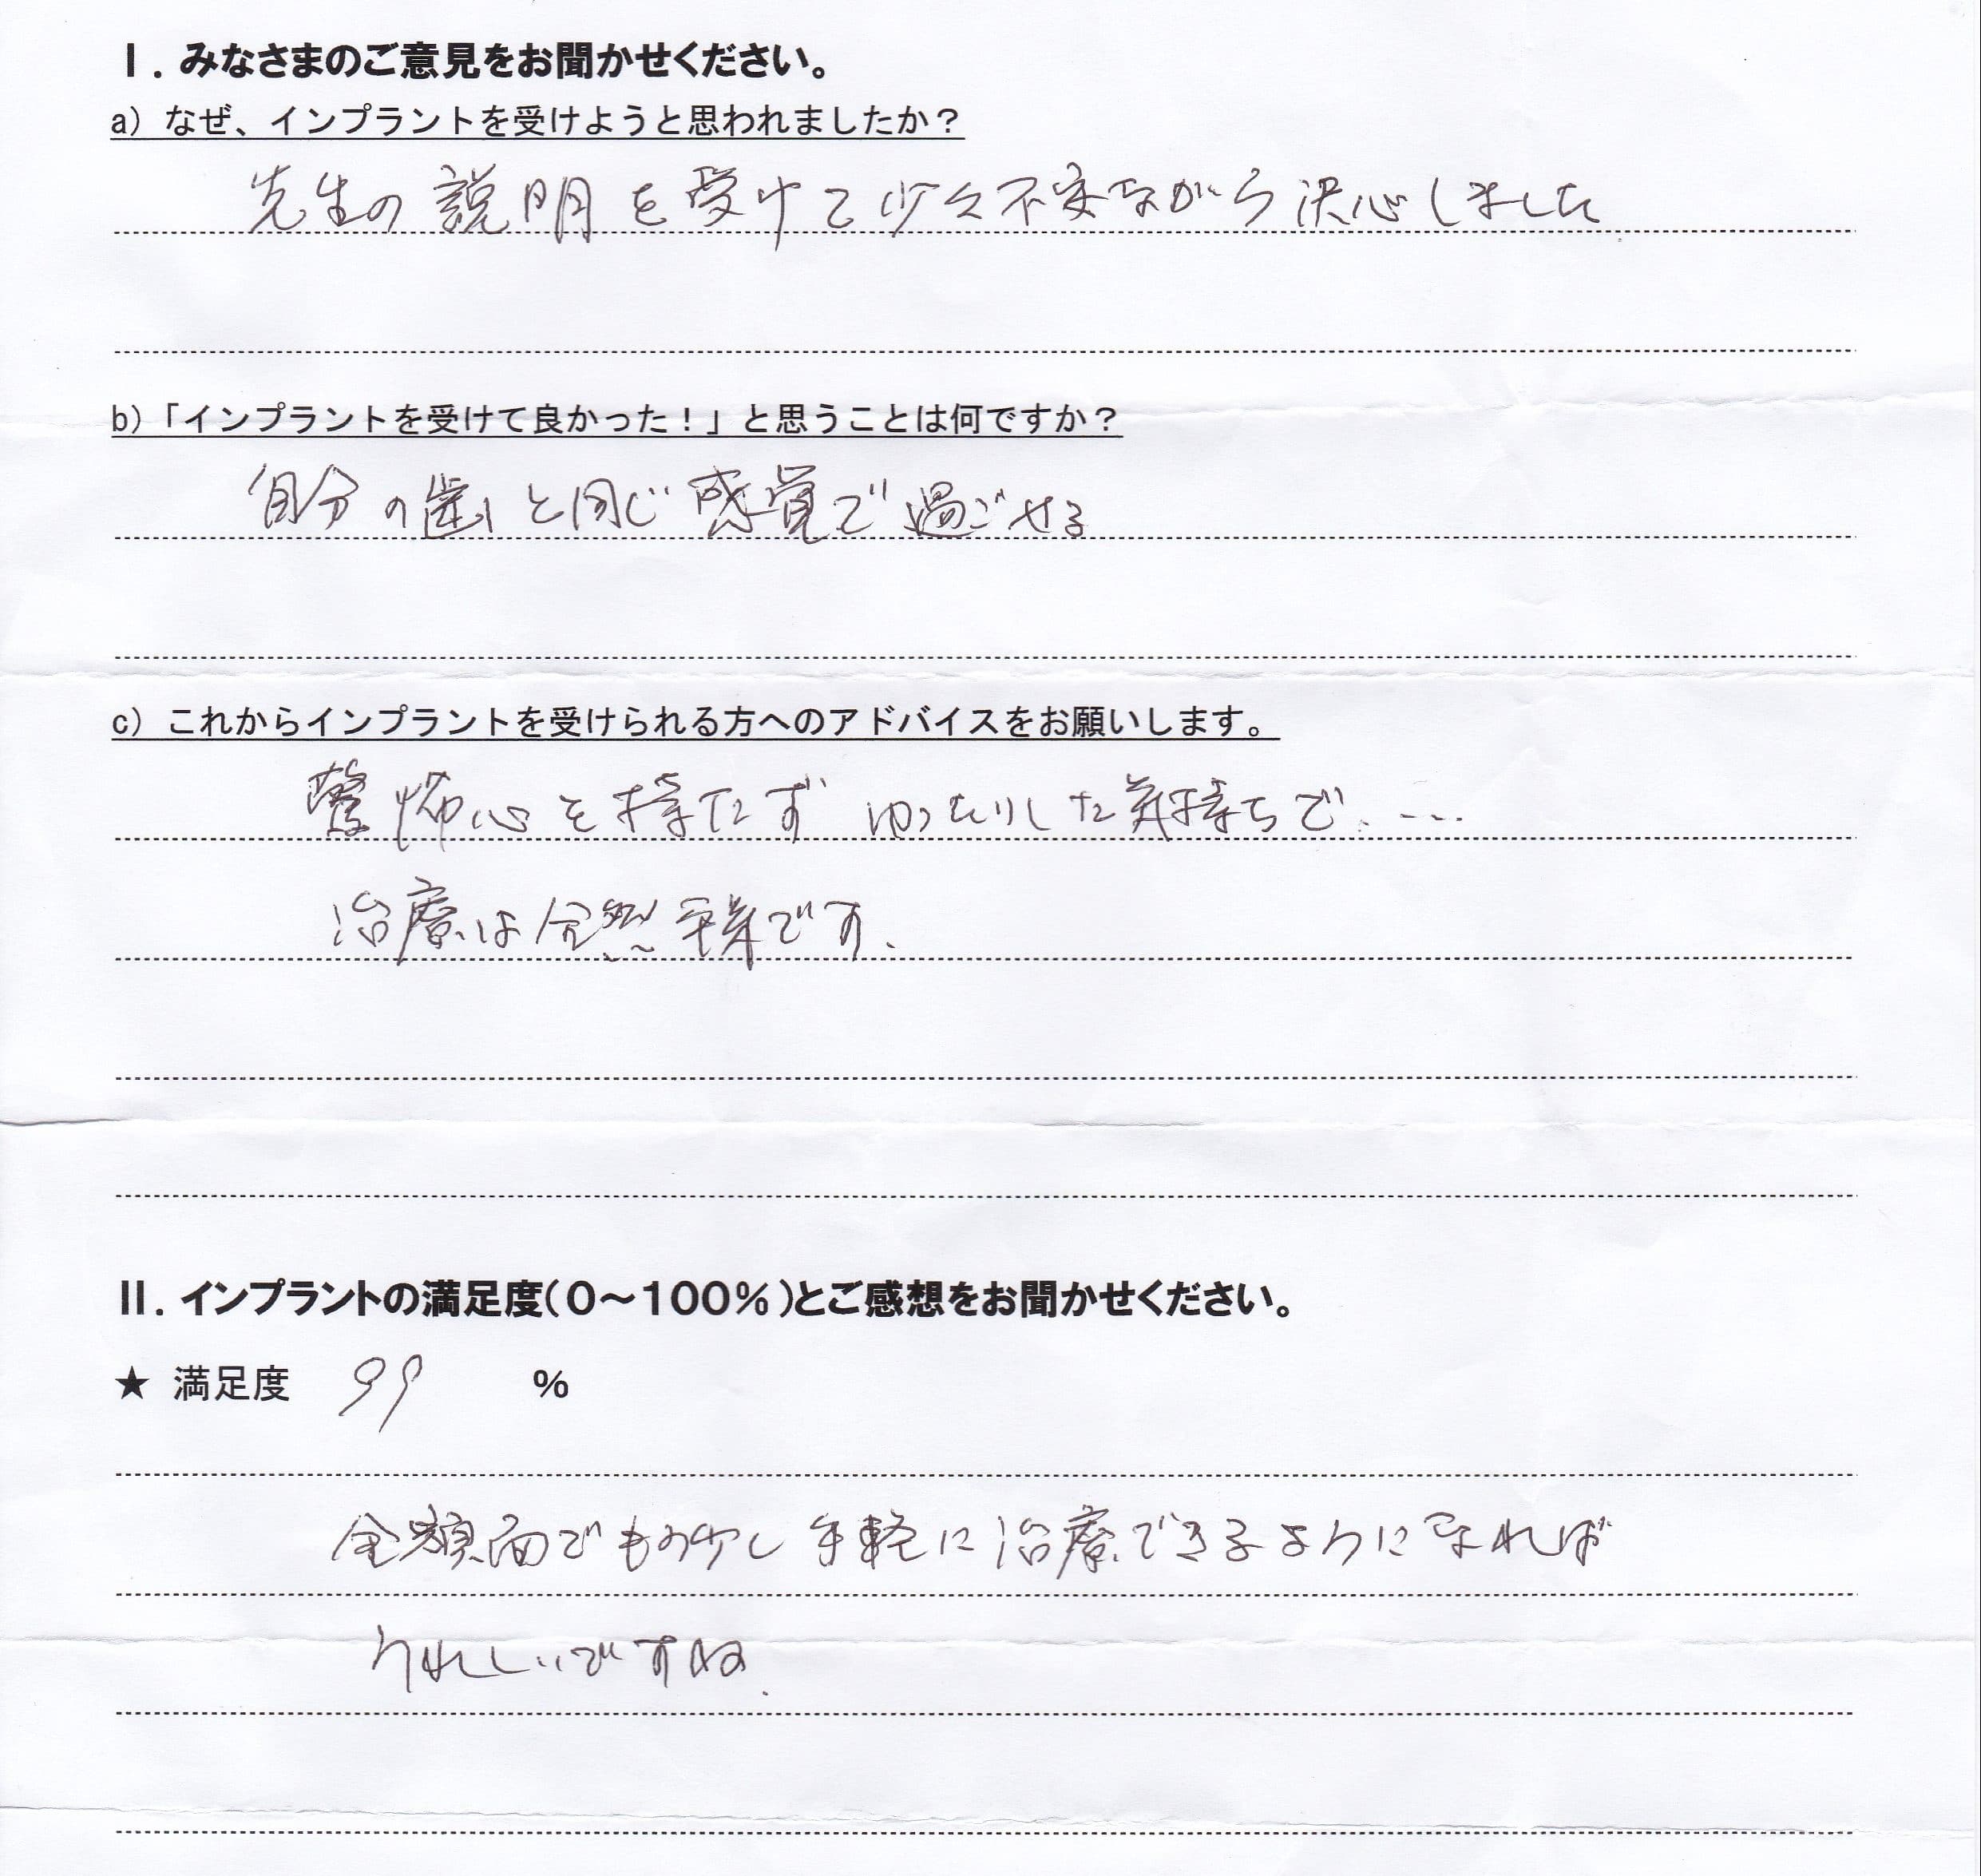 Ⅰ. みなさまのご意見をお聞かせください。
a) なぜ、インプラントを受けようと思われましたか？
先生の説明を受けて少々不安ながら決心しました
b)「インプラントを受けて良かった！」と思うことは何ですか？
自分の歯と同じ感覚で過ごせる
c) これからインプラントを受けられる方へのアドバイスをお願いします。
怖心を持たず ゆったりした気持ちで、....
治療は全然平気です、
Ⅱ. インプラントの満足度（0～100％）とご感想をお聞かせください。
★ 満足度 99 %
金額面でもう少し手軽に治療できるようになれば
うれしいですね.